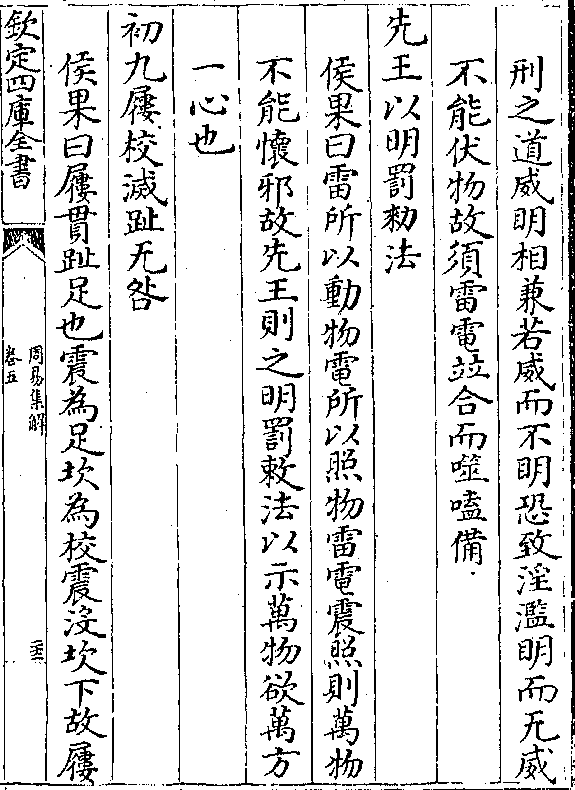 刑之道威明相兼若威而不明恐致淫濫明而无威
不能伏物故須雷電竝合而噬嗑備
先王以明罰勑法
侯果曰雷所以動物電所以照物雷電震照則萬物
不能懷邪故先王則之明罰敕法以示萬物欲萬方
一心也
初九屨校滅趾无咎
侯果曰屨貫趾足也震為足坎為校震沒坎下故屨
欽定四庫全書
周易集解
卷五